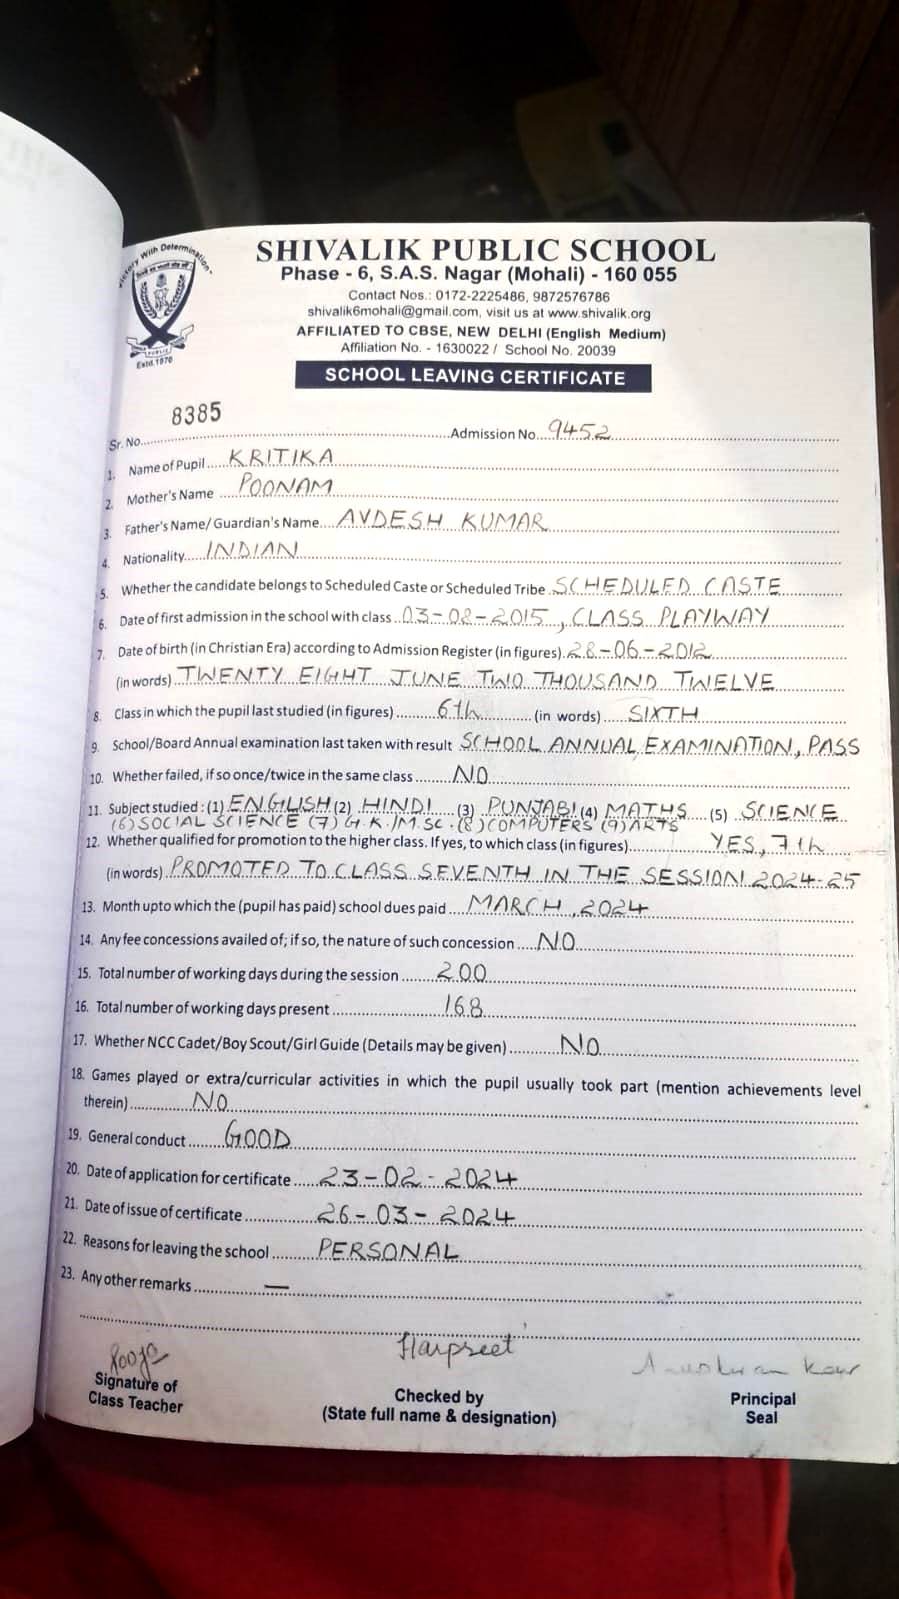 "Victory With Determination"
PUBLIC
Estd.1970
SHIVALIK PUBLIC SCHOOL
Phase - 6, S.A.S. Nagar (Mohali) - 160 055
Contact Nos.: 0172-2225486, 9872576786
shivalik6mohali@gmail.com, visit us at www.shivalik.org
AFFILIATED TO CBSE, NEW DELHI (English Medium)
Affiliation No. - 1630022 / School No. 20039
SCHOOL LEAVING CERTIFICATE
Sr. No. 8385 Admission No. 9452
1. Name of Pupil KRITIKA
2. Mother's Name POONAM
3. Father's Name/ Guardian's Name AVDESH KUMAR
4. Nationality INDIAN
5. Whether the candidate belongs to Scheduled Caste or Scheduled Tribe SCHEDULED CASTE
6. Date of first admission in the school with class 03-02-2015, CLASS PLAYWAY
7. Date of birth (in Christian Era) according to Admission Register (in figures) 28-06-2012
(in words) TWENTY EIGHT JUNE TWO THOUSAND TWELVE
8. Class in which the pupil last studied (in figures) 6th (in words) SIXTH
9. School/Board Annual examination last taken with result SCHOOL ANNUAL EXAMINATION, PASS
10. Whether failed, if so once/twice in the same class NO
11. Subject studied : (1) ENGLISH (2) HINDI (3) PUNJABI (4) MATHS (5) SCIENCE
(6) SOCIAL SCIENCE (7) G.K./M.SC. (8) COMPUTERS (9) ARTS
12. Whether qualified for promotion to the higher class. If yes, to which class (in figures) YES, 7th
(in words) PROMOTED TO CLASS SEVENTH IN THE SESSION 2024-25
13. Month upto which the (pupil has paid) school dues paid MARCH, 2024
14. Any fee concessions availed of; if so, the nature of such concession NO
15. Total number of working days during the session 200
16. Total number of working days present 168
17. Whether NCC Cadet/Boy Scout/Girl Guide (Details may be given) NO
18. Games played or extra/curricular activities in which the pupil usually took part (mention achievements level
therein) NO
19. General conduct GOOD
20. Date of application for certificate 23-02-2024
21. Date of issue of certificate 26-03-2024
22. Reasons for leaving the school PERSONAL
23. Any other remarks —
Pooja Harpreet Kaur
Signature of
Class Teacher
Checked by
(State full name & designation)
Principal
Seal